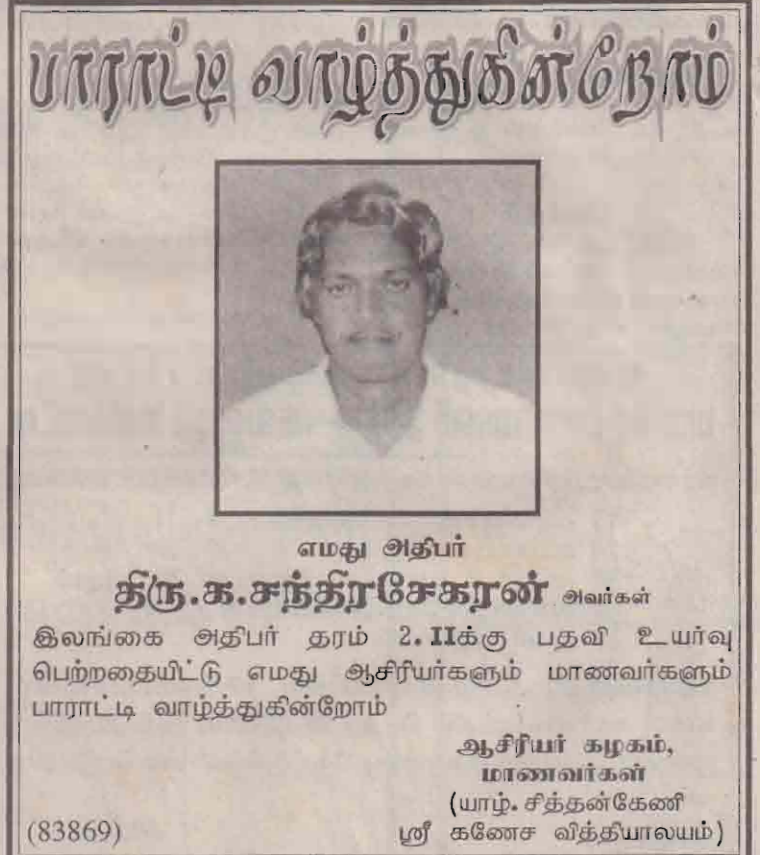 பாராட்டி வாழ்த்துகின்றோம்
எமது அதிபர்
திரு.க.சந்திரசேகரன் அவர்கள்
இலங்கை அதிபர் தரம் 2.IIக்கு பதவி உயர்வு
பெற்றதையிட்டு எமது ஆசிரியர்களும் மாணவர்களும்
பாராட்டி வாழ்த்துகின்றோம்
ஆசிரியர் கழகம்,
மாணவர்கள்
(யாழ். சித்தன்கேணி
(83869) ஸ்ரீ கணேச வித்தியாலயம்)